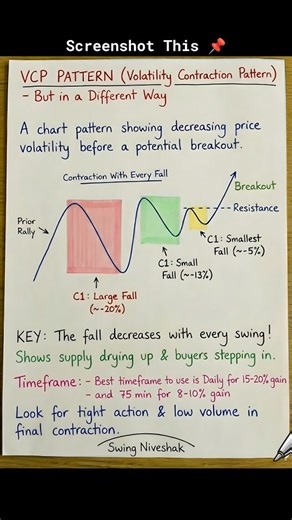 Screenshot This 📌
VCP PATTERN (Volatility Contraction Pattern)
- But in a Different Way
A chart pattern showing decreasing price
volatility before a potential breakout.
Contraction With Every Fall
Breakout
Resistance
Prior
Rally
C1: Smallest
Fall (~-5%)
C1: Small
Fall (~-13%)
C1: Large Fall
(~-20%)
KEY: The fall decreases with every swing!
Shows supply drying up & buyers stepping in.
Timeframe: - Best timeframe to use is Daily for 15-20% gain
- and 75 min for 8-10% gain
Look for tight action & low volume in
final contraction.
Swing Niveshak